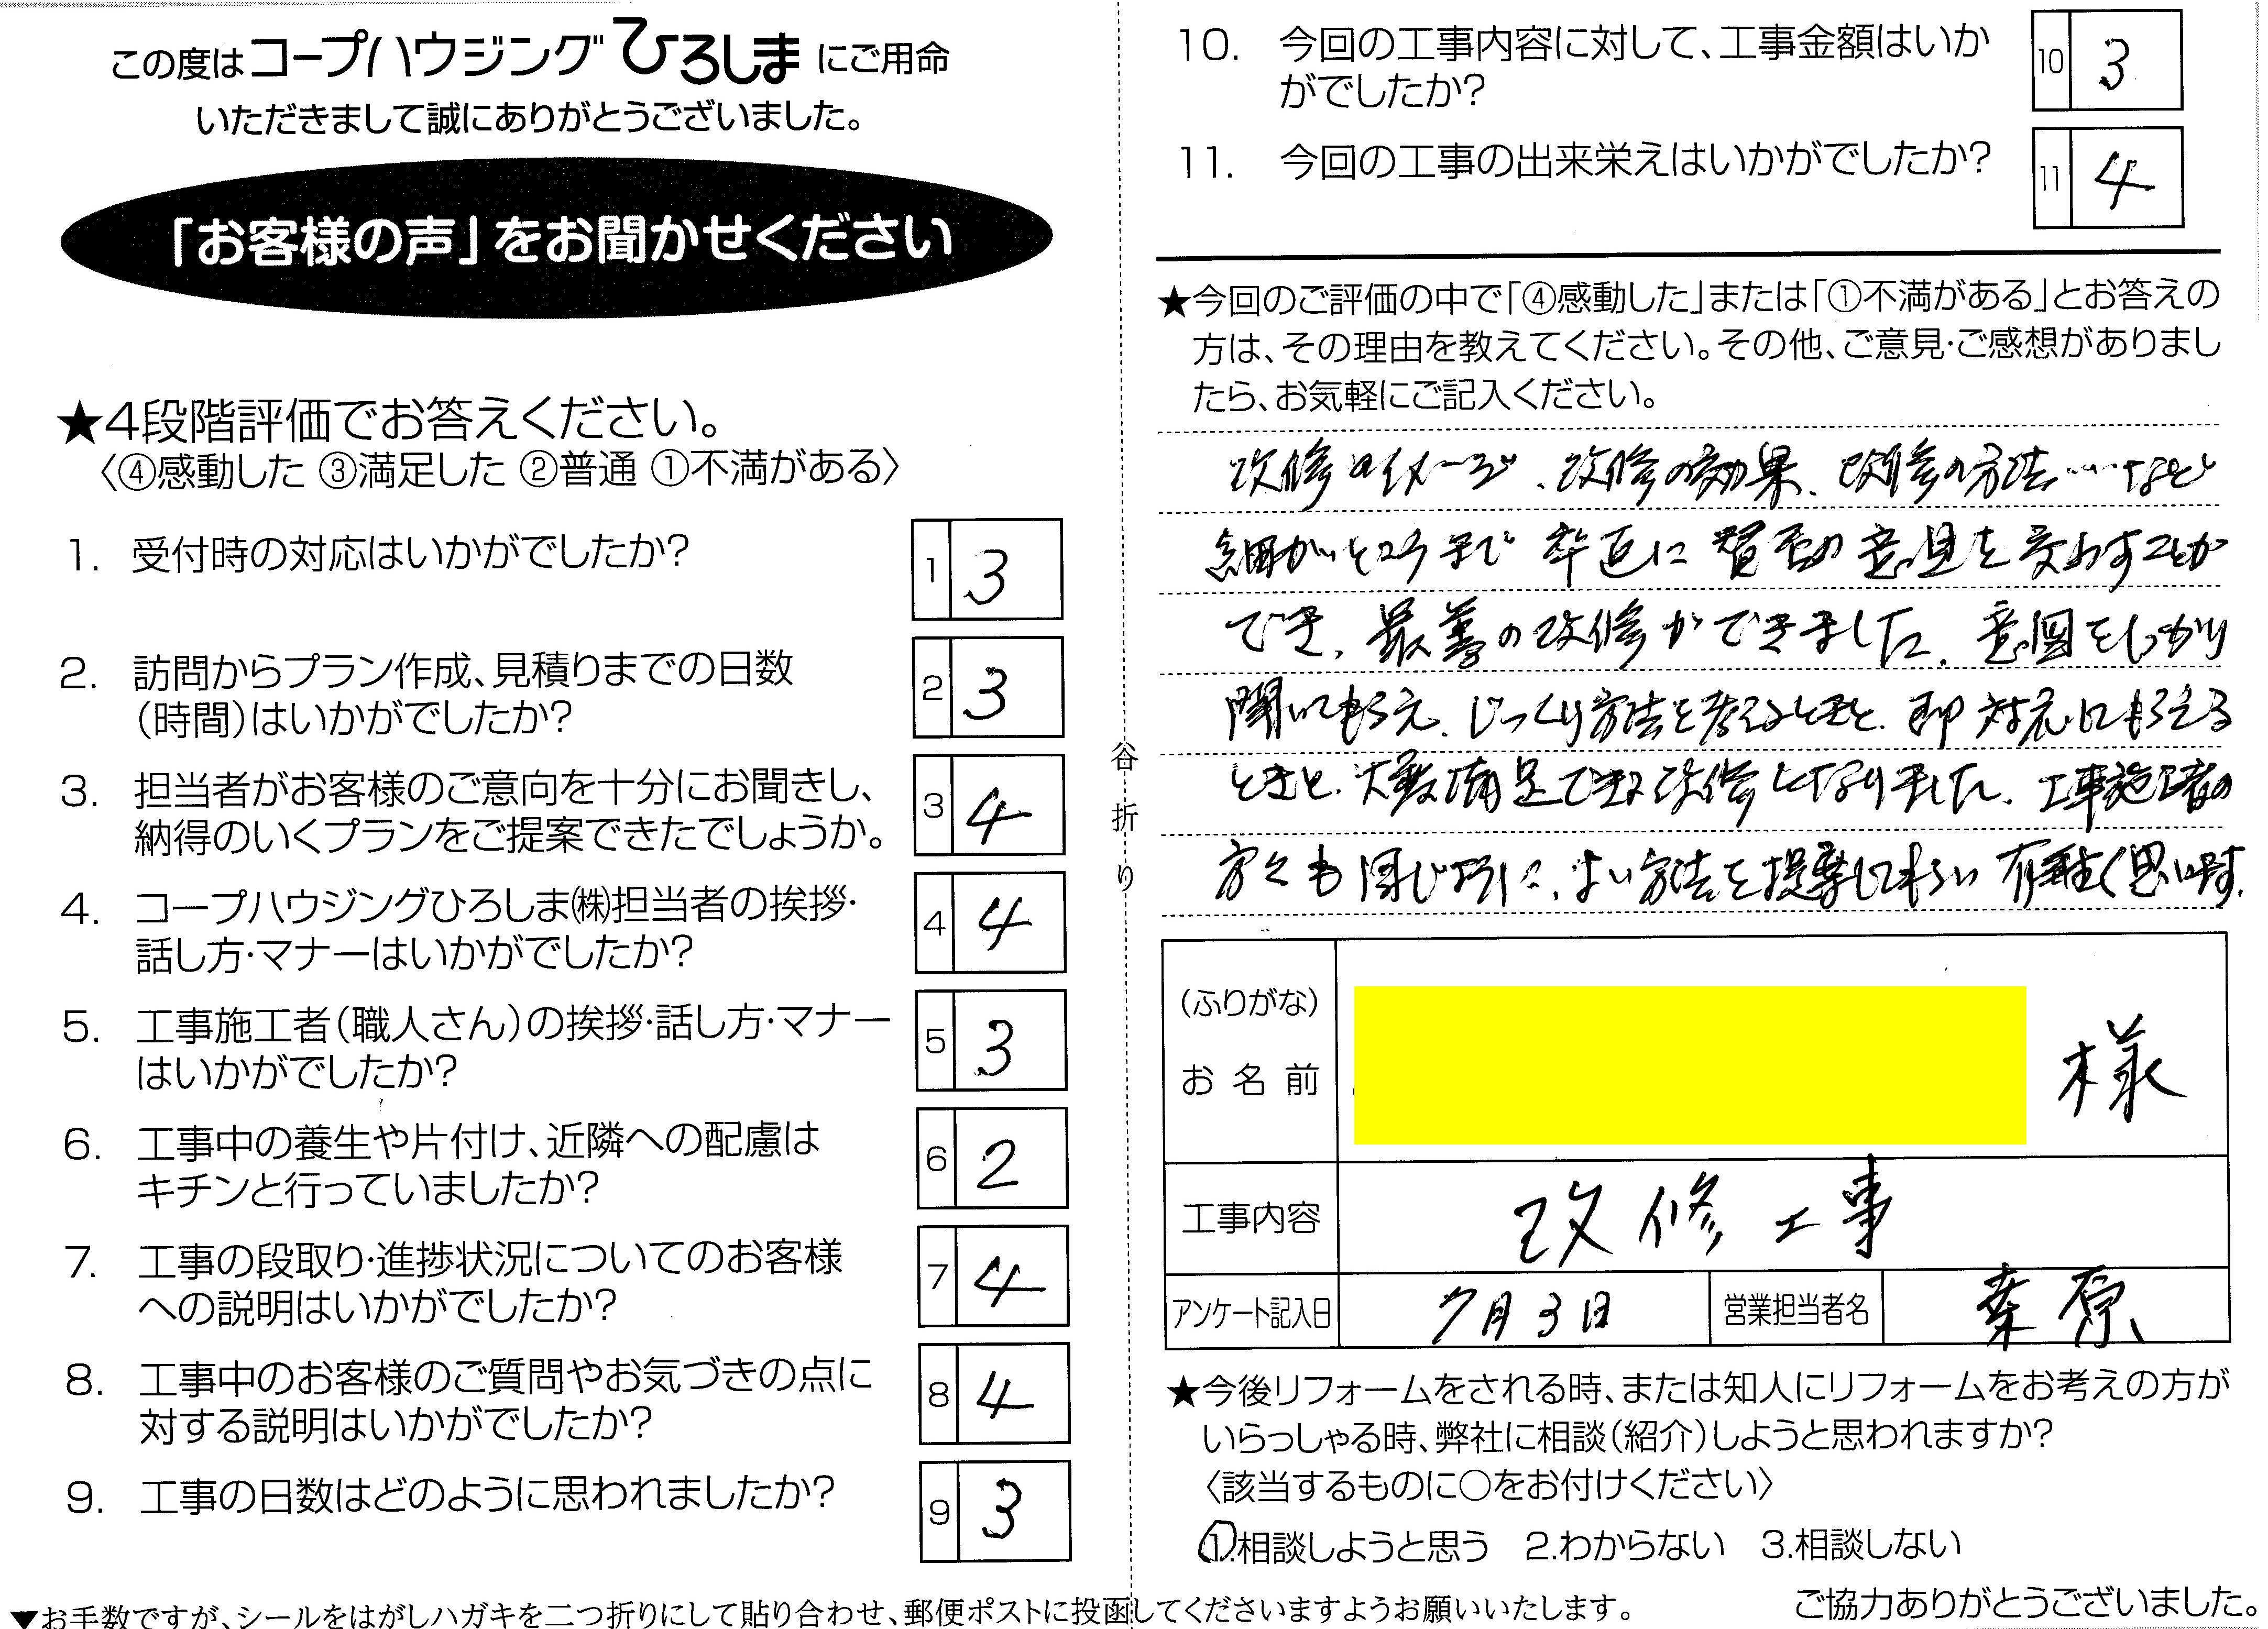 この度はコープハウジングひろしまにご用命
いただきまして誠にありがとうございました。
「お客様の声」をお聞かせください
★4段階評価でお答えください。
〈④感動した ③満足した ②普通 ①不満がある〉
1. 受付時の対応はいかがでしたか?
1 3
2. 訪問からプラン作成、見積りまでの日数
(時間)はいかがでしたか?
2 3
3. 担当者がお客様のご意向を十分にお聞きし、
納得のいくプランをご提案できたでしょうか。
3 4
4. コープハウジングひろしま㈱担当者の挨拶・
話し方・マナーはいかがでしたか?
4 4
5. 工事施工者(職人さん)の挨拶・話し方・マナー
はいかがでしたか?
5 3
6. 工事中の養生や片付け、近隣への配慮は
キチンと行っていましたか?
6 2
7. 工事の段取り・進捗状況についてのお客様
への説明はいかがでしたか?
7 4
8. 工事中のお客様のご質問やお気づきの点に
対する説明はいかがでしたか?
8 4
9. 工事の日数はどのように思われましたか?
9 3
▼お手数ですが、シールをはがしハガキを二つ折りにして貼り合わせ、郵便ポストに投函してくださいますようお願いいたします。
谷折り
10. 今回の工事内容に対して、工事金額はいか
がでしたか?
10 3
11. 今回の工事の出来栄えはいかがでしたか?
11 4
★今回のご評価の中で「④感動した」または「①不満がある」とお答えの
方は、その理由を教えてください。その他、ご意見・ご感想がありまし
たら、お気軽にご記入ください。
改修のイメージ、改修の効果、改修の方法……など
細かいところまで率直に賛否の意見を交わすことが
でき、最善の改修ができました。意図をしっかり
聞いてもらえ、じっくり方法を考えるときと、即対応してもらえる
ときと、大変満足できる改修となりました。工事施工者の
方々も同じように、よい方法を提案してもらい有難く思います。
(ふりがな)
お名前
様
工事内容 改修工事
アンケート記入日 7月3日 営業担当者名 桒原
★今後リフォームをされる時、または知人にリフォームをお考えの方が
いらっしゃる時、弊社に相談(紹介)しようと思われますか?
〈該当するものに○をお付けください〉
1.相談しようと思う 2.わからない 3.相談しない
ご協力ありがとうございました。